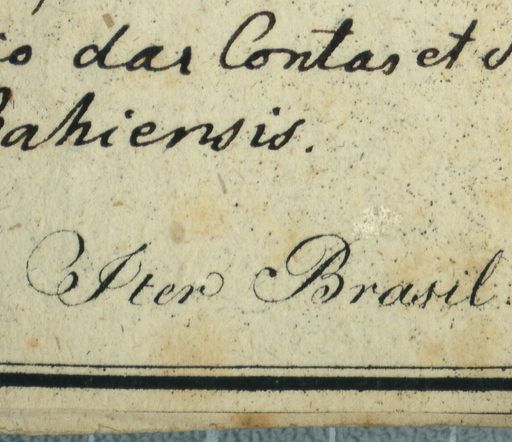 das Contas et
Bahiensis.
Iter Brasil.